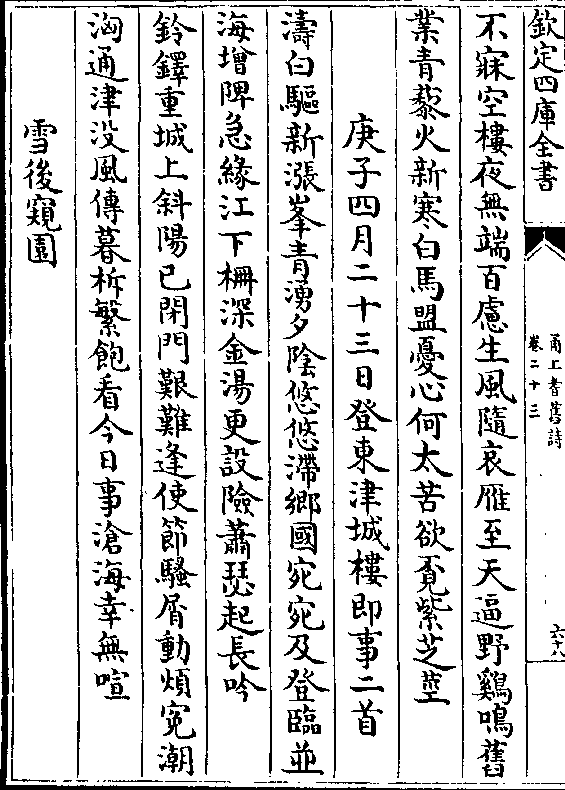 欽定四庫全書
甬上耆舊詩
卷二十三
六十八
不寐空樓夜無端百慮生風隨哀雁至天逼野鷄鳴舊
業青藜火新寒白馬盟憂心何太苦欲覔紫芝莖
庚子四月二十三日登東津城樓即事二首
濤白驅新漲峯青湧夕陰悠悠滯鄉國宛宛及登臨並
海增陴急緣江下柵深金湯更設險蕭瑟起長吟
鈴鐸重城上斜陽已閉門艱難逢使節騷屑動煩寃潮
洶通津没風傳暮柝繁飽看今日事滄海幸無喧
雪後窺園